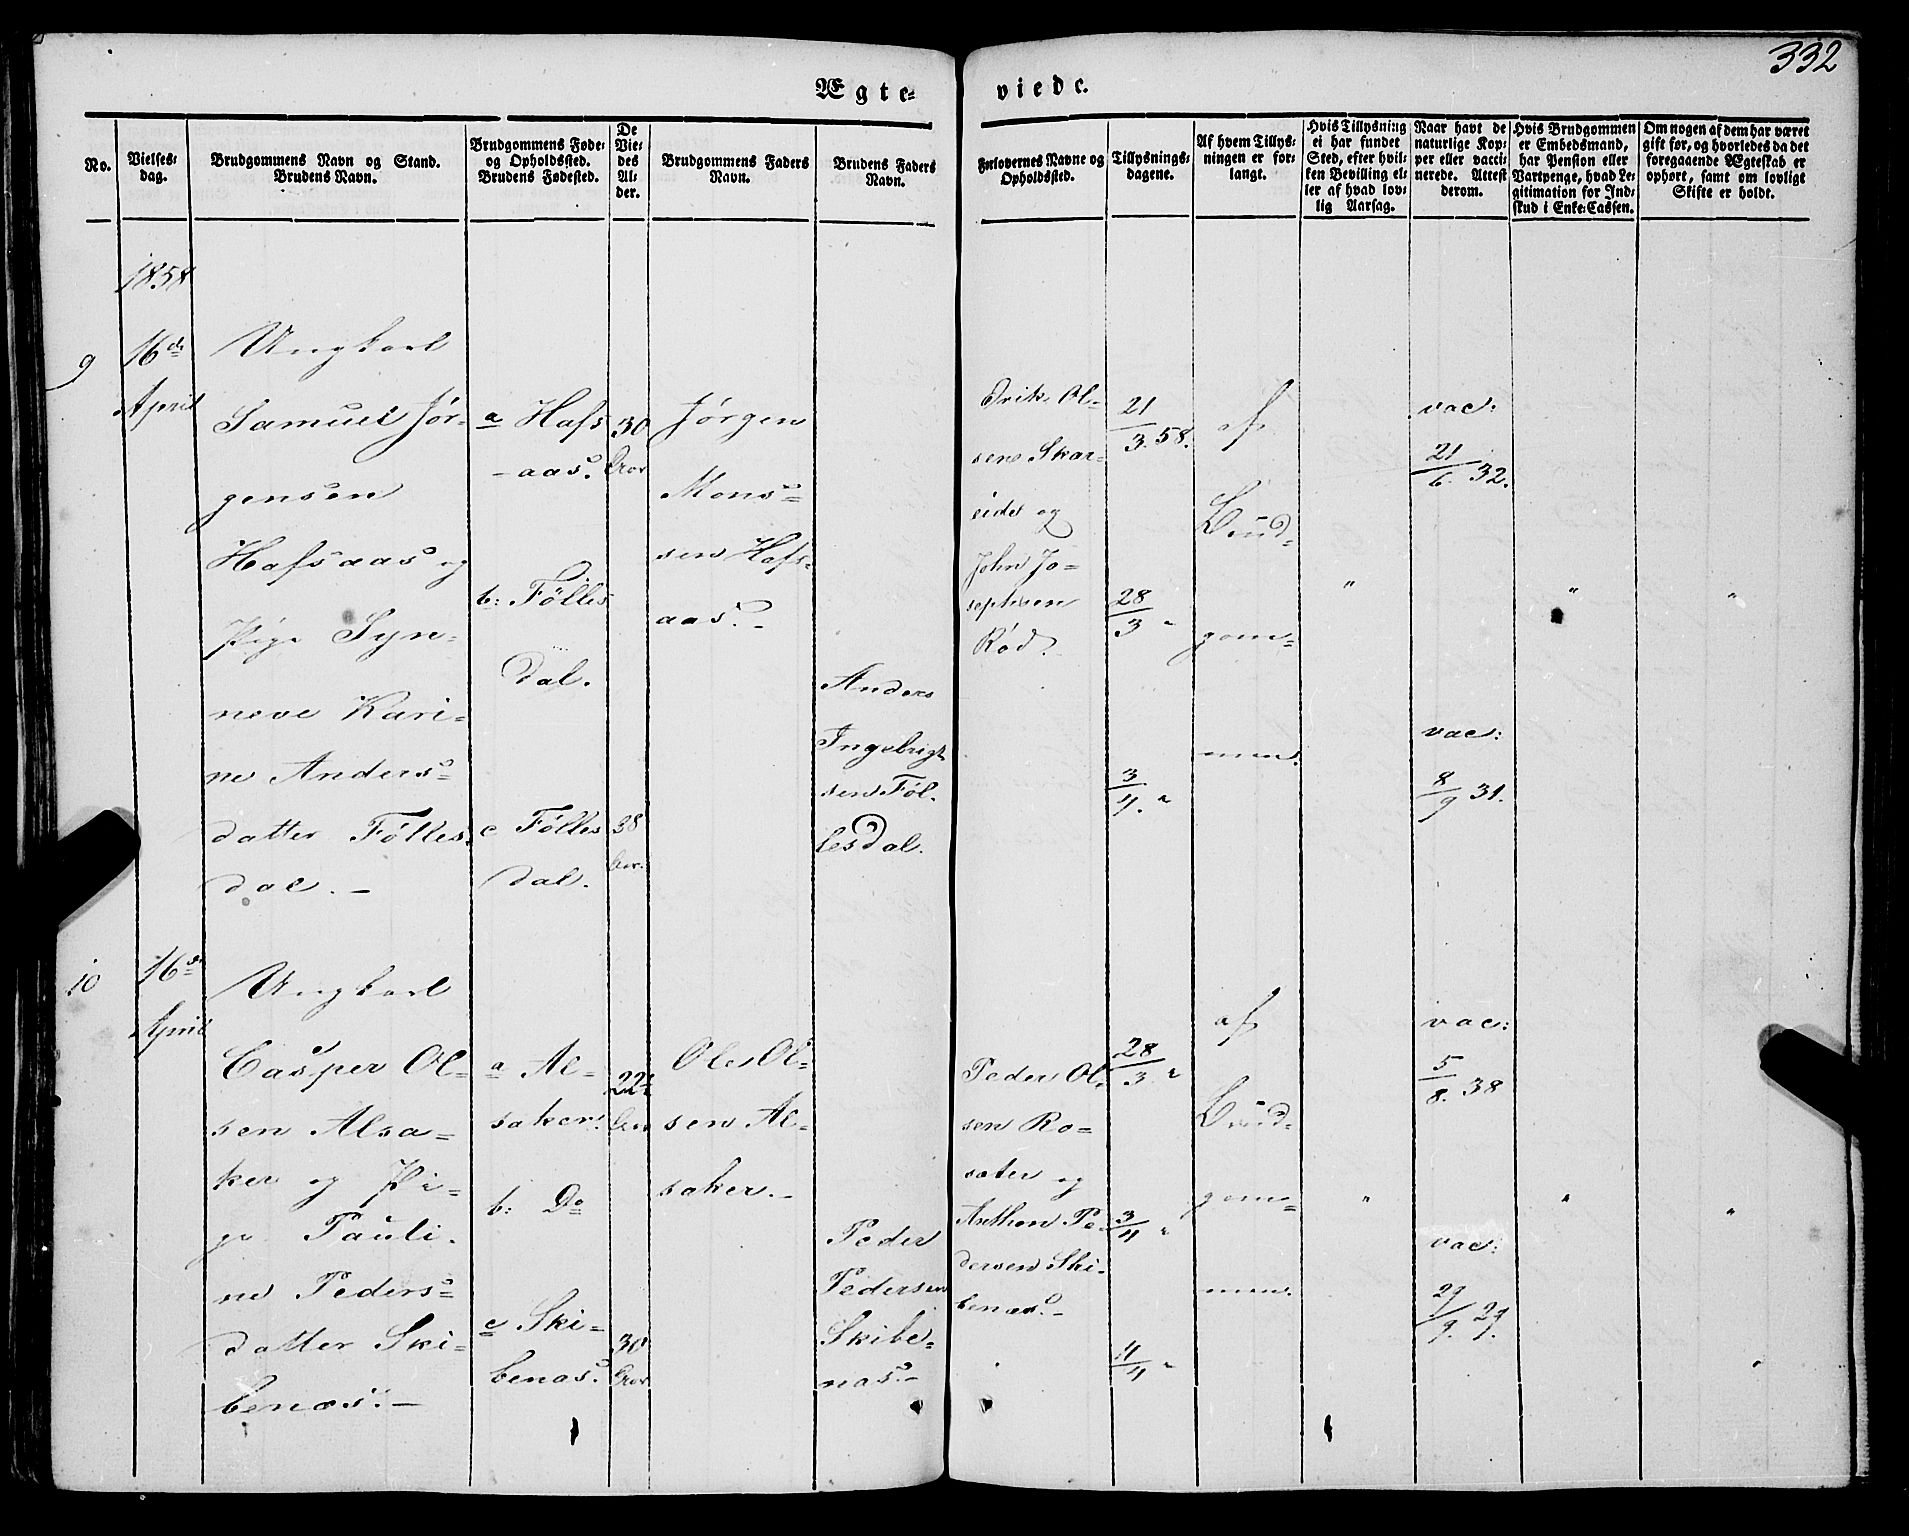 332
Ægte-
viede.
No.
Vielses-
dag.
Brudgommens Navn og Stand.
Brudens Navn.
Brudgommens Føde-
og Opholdssted.
Brudens Fødested.
De
Vie-
des
Al-
der.
Brudgommens Faders
Navn.
Brudens Faders
Navn.
Forlovernes Navne og
Opholdssted.
Tillysnings-
dagene.
Af hvem Tillys-
ningen er for-
langt.
Hvis Tillysning
ei har fundet
Sted, efter hvil-
ken Bevilling el-
ler af hvad lov-
lig Aarsag.
Naar havt de
naturlige Kop-
per eller vacci-
nerede. Attest
derom.
Hvis Brudgommen
er Embedsmand,
har Pension eller
Vartpenge, hvad Le-
gitimation for Ind-
skud i Enke-Cassen.
Om nogen af dem har været
gift før, og hvorledes da det
foregaaende Ægteskab er
ophørt, samt om lovligt
Skifte er holdt.
1858
9
16de
April
Ungkarl
Samuel Jør-
gensen
Hafsaas og
Pige Syn-
neve Kari-
ne Anders-
datter Følles-
dal. –
a Hafs
-aas.
b: Følles
dal.
c Følles
dal.
30
Aar
38
Aar.
Jørgen
Mons-
sen Hafs-
aas. –
Anders
Ingebrigt
sen Føl-
lesdal.
Erik Ol-
sen Skar-
eidet og
John Jo-
sephsen
Rød.
21/3. 58.
28/3 "
3/4. "
af
Brud-
gom-
men.
"
vac:
21/6 32.
vac:
8/9 31.
"
"
10
16de
April
Ungkarl
Casper Ol-
sen Alsa-
ker og Pi-
ge Pauli-
ne Peders-
datter Ski-
benæs. –
a Al-
saker.
b: Do
c Ski-
benæs.
22½
Aar
30
Aar
Ole Ol-
sen Al-
saker. –
Peder
Pedersen
Skibe-
næs. –
Peder Ol-
sen Ro-
sæter og
Anthon Pe-
dersen Ski-
benæs. –
28/3. "
3/4 "
11/4 "
af
Brud-
gom-
men.
"
vac:
5/8. 38
vac:
29/9. 29.
"
"
"